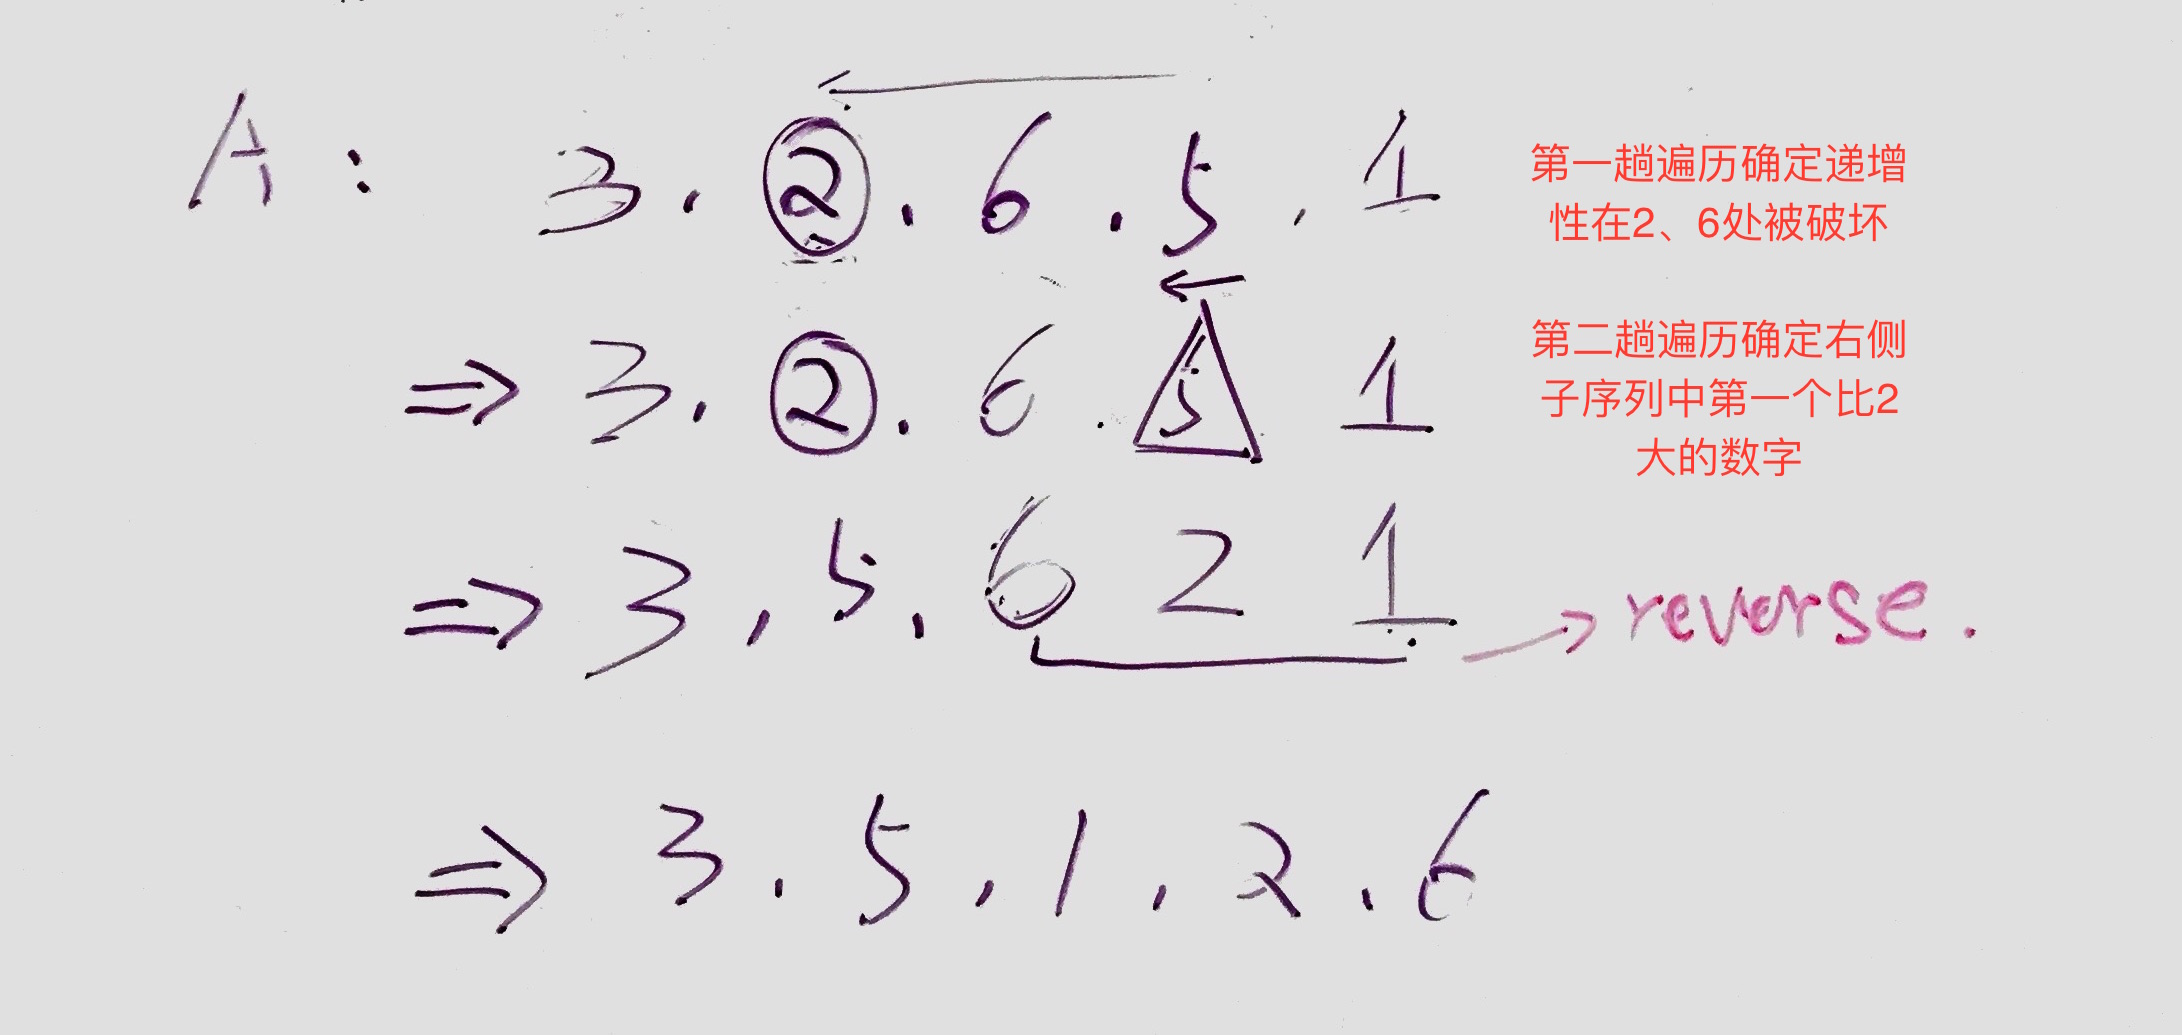 A : 3 . 2 . 6 . 5 , 1
第一趟遍历确定递增
性在2、6处被破坏
⇒ 3 . 2 . 6 . 5 1
第二趟遍历确定右侧
子序列中第一个比2
大的数字
⇒ 3 , 5 , 6 2 1 → reverse .
⇒ 3 . 5 , 1 , 2 . 6